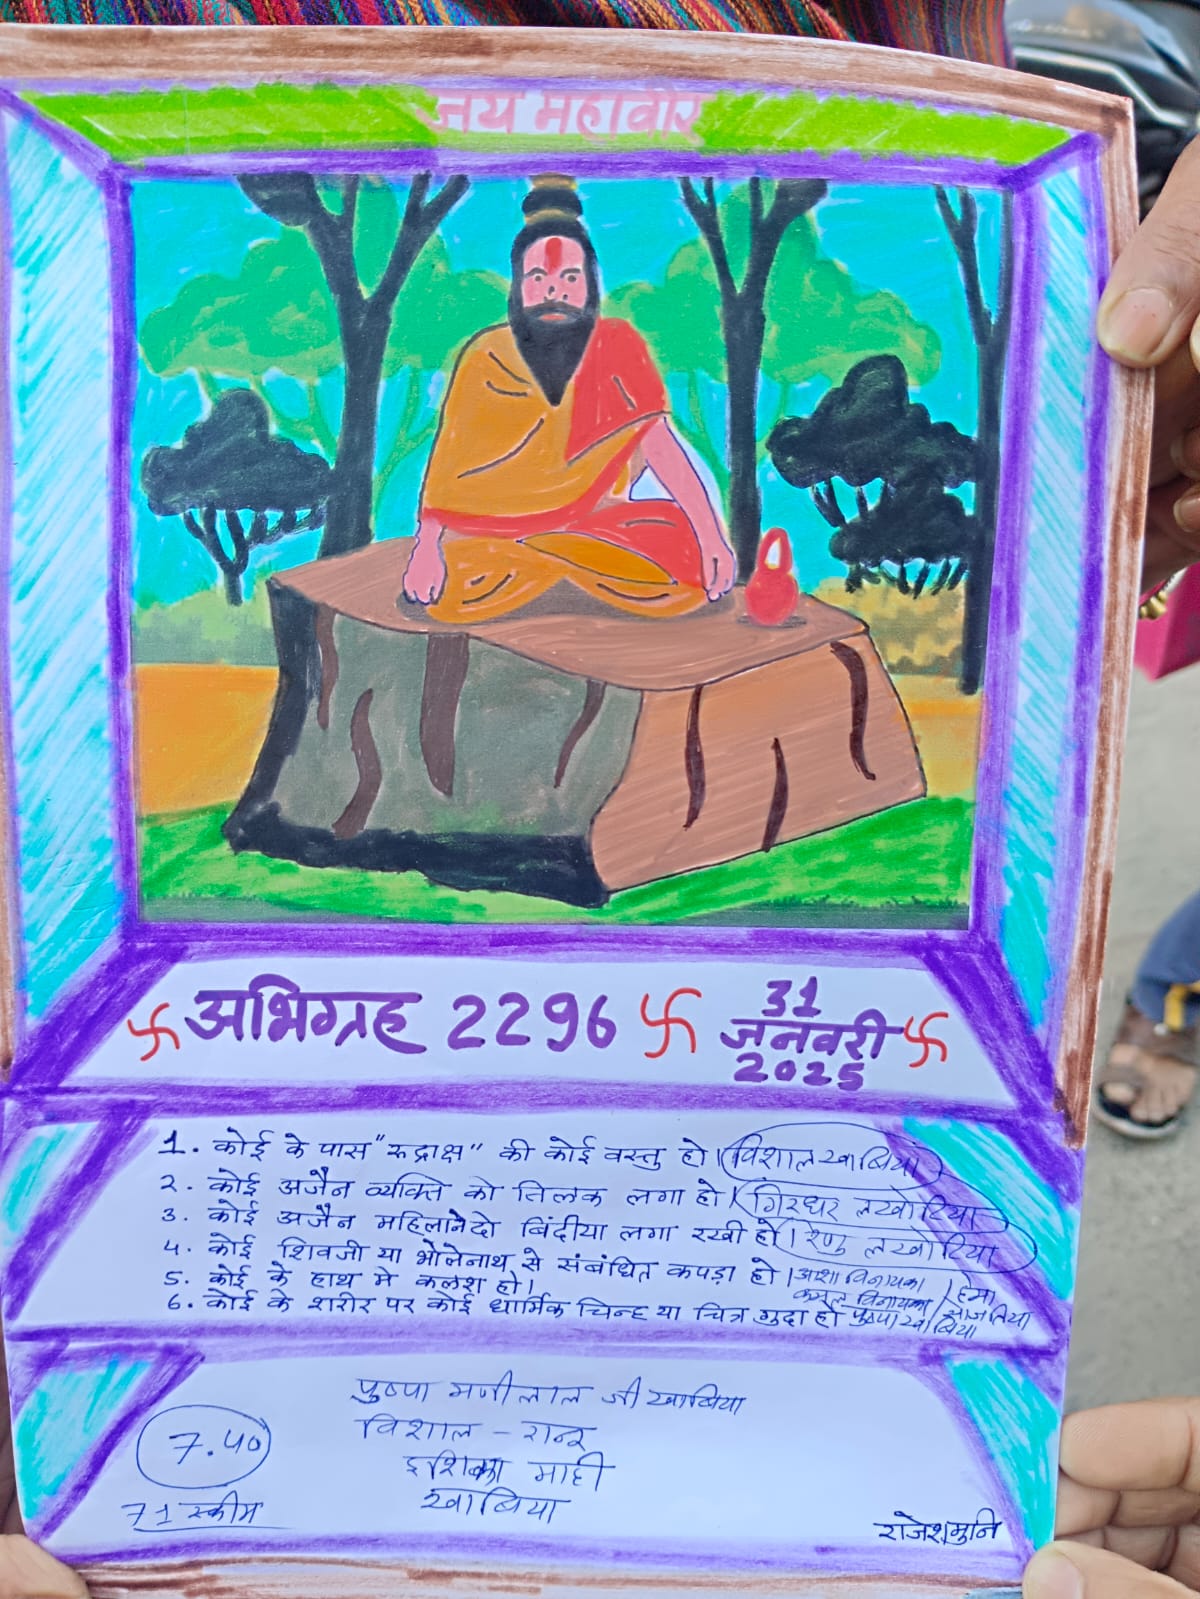 जय महावीर
卐 अभिग्रह 2296 卐 31 जनवरी 2025 卐
1. कोई के पास "रुद्राक्ष" की कोई वस्तु हो। विशाल खाबिया
2. कोई अजैन व्यक्ति को तिलक लगा हो। गिरधर लखोटिया
3. कोई अजैन महिलाने दो बिंदीया लगा रखी हो। रेणु लखोटिया
4. कोई शिवजी या भोलेनाथ से संबंधित कपड़ा हो। आशा विनायका
5. कोई के हाथ मे कलश हो। कमल विनायका
6. कोई के शरीर पर कोई धार्मिक चिन्ह या चित्र गुदा हो पुष्पा खाबिया
हेमा
पुष्पा मणीलाल जी खाबिया
विशाल -
माही
खाबिया
7.40
71 स्कीम
राजेशमुनि